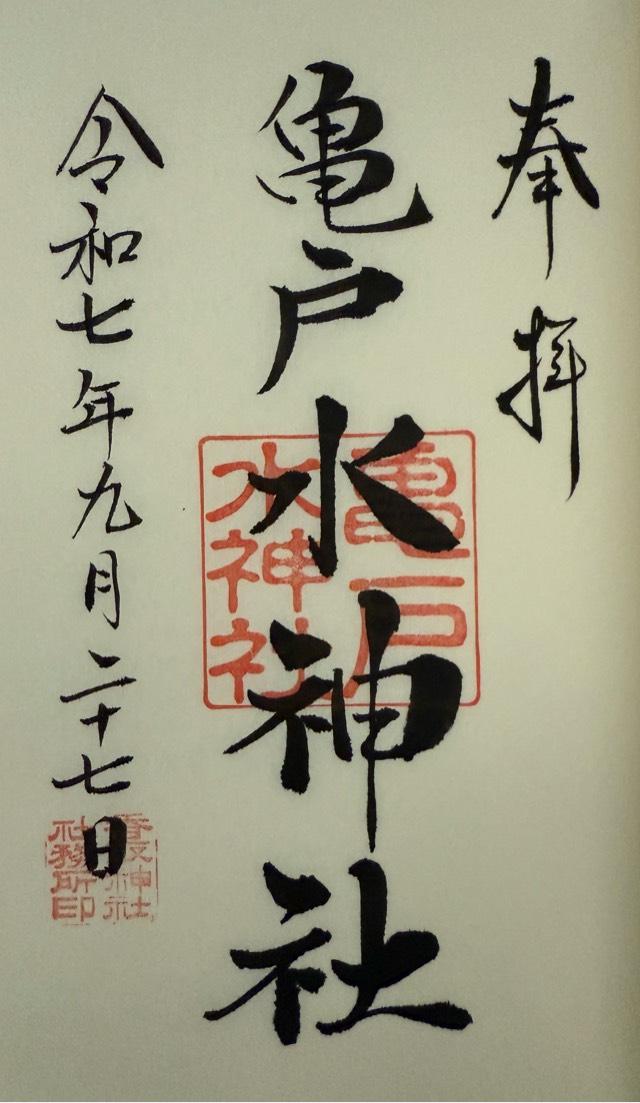 奉拝
亀戸水神社
亀戸
水神社
令和七年九月二十七日
香取神社
社務所印